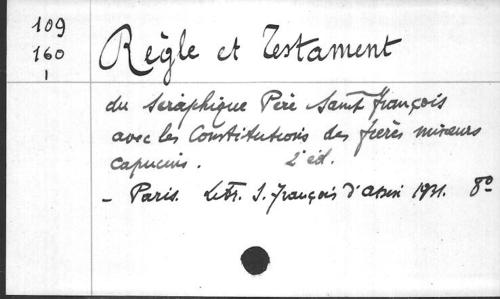 109
160
1
Règle et Testament
du Séraphique Père Saint François
avec les Constitutions des frères mineurs
capucins. 2e éd.
- Paris. Libr. S. François d'Assisi 1931. 8°